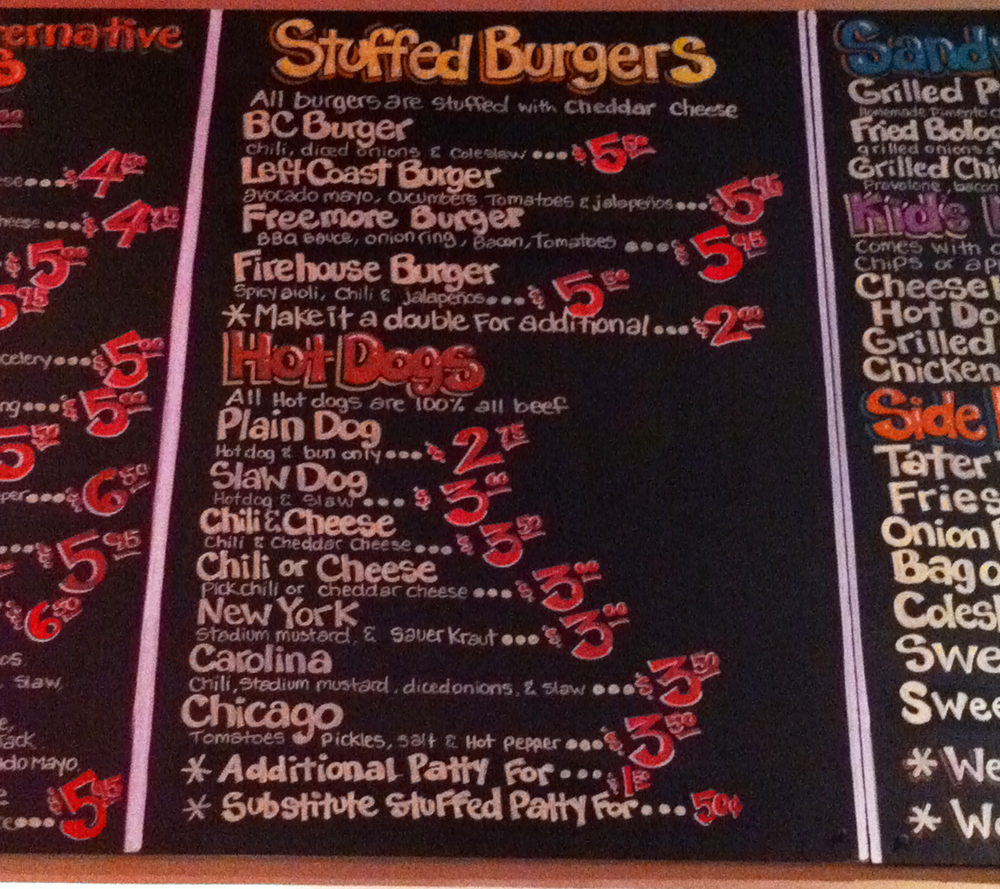 ernative
S
4 50
ese... $
heese... $ 4
$ 5 00
5 95
celery... $ 5
ng... $ 5
5 50
per... $ 6 50
... $ 5 95
$ 6 50
os
, slaw,
e,
Jack
ado Mayo
... $ 5
Stuffed Burgers
All burgers are stuffed with Cheddar Cheese
BC Burger
Chili, diced onions & Coleslaw ... $ 5 50
Left Coast Burger
avocado mayo, cucumbers Tomatoes & jalapeños... $ 5 95
Freemore Burger
BBQ sauce, onion ring, Bacon, Tomatoes ... $ 5 95
Firehouse Burger
Spicy aioli, Chili & jalapeños... $ 5 50
* Make it a double For additional... $ 2 00
Hot Dogs
All Hot dogs are 100% all beef
Plain Dog
Hot dog & bun only... $ 2 75
Slaw Dog
Hotdog & Slaw ... $ 3 00
Chili & Cheese
Chili & Cheddar Cheese... $ 3 50
Chili or Cheese
Pick chili or cheddar cheese ... $ 3
New York
Stadium mustard, & Sauer Kraut ... $ 3 00
Carolina
Chili, Stadium mustard, diced onions, & slaw ... $ 3 50
Chicago
Tomatoes Pickles, salt & Hot Pepper ... $ 3 50
* Additional Patty For... $ 1
* Substitute Stuffed Patty For... 50¢
Sandw
Grilled P
Homemade Pimento c
Fried Bolog
grilled onions &
Grilled Chi
Provolone, bacon
Kid's
Comes with
Chips or ap
Cheese
Hot Do
Grilled
Chicken
Side
Tater
Fries
Onion
Bag o
Colesl
Swe
Swee
* We
* We